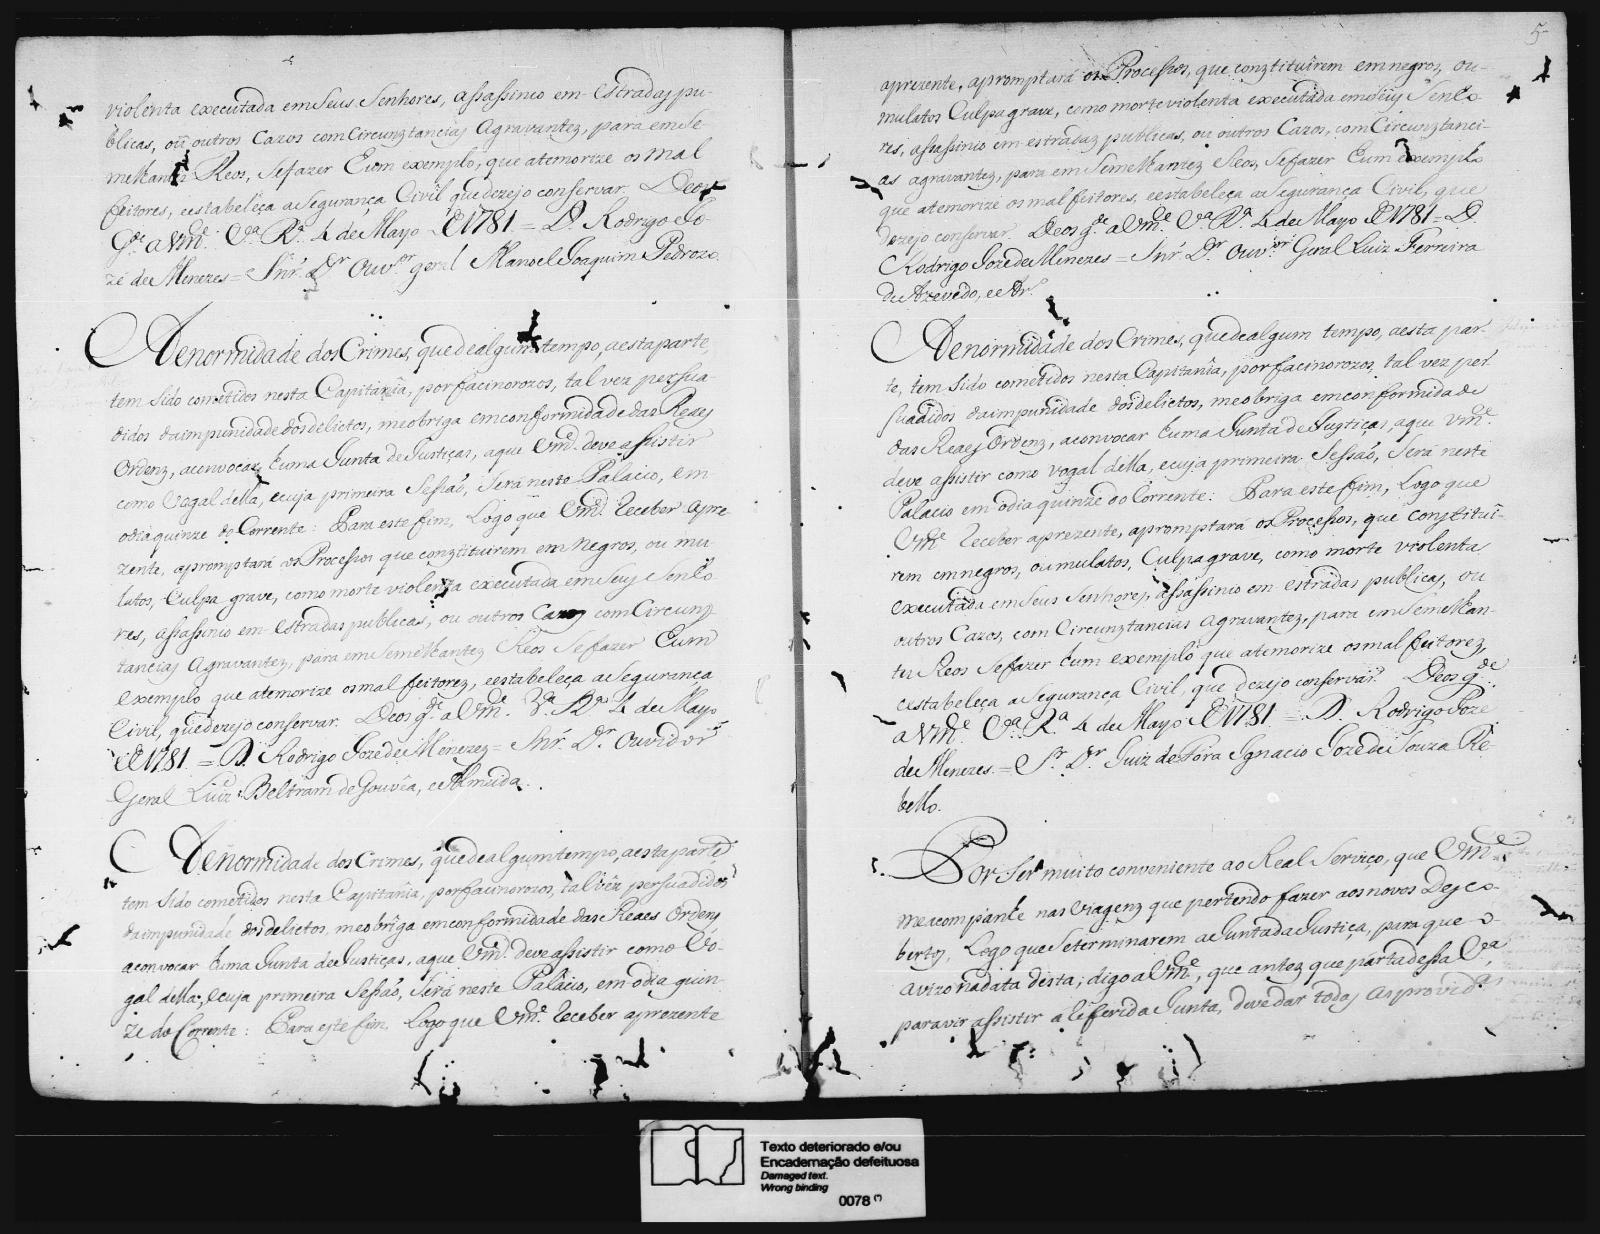 violenta executada em Seus Senhores, assassinio em Estradas pu-
blicas, ou outros Cazos com Circunztancias Agravantez, para em Se-
melhantes Reos, Se fazer hum exemplo, que atemorize os mal
feitores, e estabeleça a Segurança Civil que dezejo conservar. Deos
G.de a Vm.ce V.a R.a 4 de Mayo de 1781 = D. Rodrigo Jo-
zé de Menezes = Snr. D.r Ouv.or geral Manoel Joaquim Pedrozo.
A enormidade dos Crimes, que de algum tempo, a esta parte,
tem Sido cometidos nesta Capitania, por facinorozos, tal vez persua-
didos da impunidade dos delictos, me obriga em conformidade das Reaes
Ordenz, a convocar huma Junta de Justiças, a que Vm.ce deve assistir
como Vogal della, e cuja primeira Sessaõ, Será neste Palacio, em
o dia quinze do Corrente: Para este fim, Logo que Vm.ce receber apre-
zente, apromptará os Processos que conztituirem em Negros, ou mu-
latos, Culpa grave, como morte violenta executada em Seus Senho-
res, assassinio em Estradas publicas, ou outros Cazos com Circunz-
tancias Agravantez, para em Semelhantez Reos Se fazer hum
exemplo que atemorize os mal feitorez, e estabeleça a Segurança
Civil, que dezejo conservar. Deos g.de a Vm.ce V.a R.a 4 de Mayo
de 1781 = D. Rodrigo Joze de Menezez = Snr. D.r Ouvidor
Geral Luiz Beltram de Gouvêa, e Almeida.
A enormidade dos Crimes, que de algum tempo, a esta parte
tem Sido cometidos nesta Capitania, por facinorozos, tal vez persuadidos
da impunidade dos delictos, me obriga em conformidade das Reaes Ordenz
a convocar huma Junta de Justiças, a que Vm.ce deve assistir como Vo-
gal della, e cuja primeira Sessaõ, Será neste Palacio, em o dia quin-
ze do Corrente: Para este fim, Logo que Vm.ce receber aprezente
5
aprezente, apromptará os Processos, que conztituirem em negros, ou-
mulatos Culpa grave, como morte violenta executada em Seus Senho-
res, assassinio em estradas publicas, ou outros Cazos, com Circunztanci-
as agravantez, para em Semelhantez Reos, Se fazer hum exemplo
que atemorize os mal feitores, e estabeleça a Segurança Civil, que
dezejo conservar. Deos g.de a Vm.ce V.a R.a 4 de Mayo de 1781 = D.
Rodrigo Joze de Menezes = Snr. D.r Ouv.or Geral Luiz Ferreira
de Azevedo, e Ar.
A enormidade dos Crimes, que de algum tempo, a esta par-
te, tem Sido cometidos nesta Capitania, por facinorozos, tal vez per-
suadidos da impunidade dos delictos, me obriga em conformidade
das Reaes Ordenz, a convocar huma Junta de Justiças, a que Vm.ce
deve assistir como vogal della, e cuja primeira Sessaõ, Será neste
Palacio em o dia quinze do Corrente: Para este fim, Logo que
Vm.ce receber aprezente, apromptará os Processos, que conztitui-
rem em negros, ou mulatos, Culpa grave, como morte violenta
executada em Seus Senhores, assassinio em estradas publicas, ou
outros Cazos, com Circunztancias Agravantez, para em Semelhan-
tes Reos Se fazer hum exemplo que atemorize os mal feitorez,
e estabeleça a Segurança Civil, que dezejo conservar. Deos g.de
a Vm.ce V.a R.a 4 de Mayo de 1781 = D. Rodrigo Joze
de Menezes. = S.r D.r Juiz de Fora Ignacio Joze de Souza Re-
bello.
Por Ser muito conveniente ao Real Serviço, que Vm.ce
me acompanhe nas Viagenz que pertendo fazer aos novos Desco-
bertos, Logo que Se terminarem a Junta da Justiça, para que o
avizo na data desta; digo a Vm.ce, que antez que parta dessa V.a
para vir assistir a referida Junta, deve dar todas as provid.as
Texto deteriorado e/ou
Encadernação defeituosa
Damaged text.
Wrong binding
0078 (*)